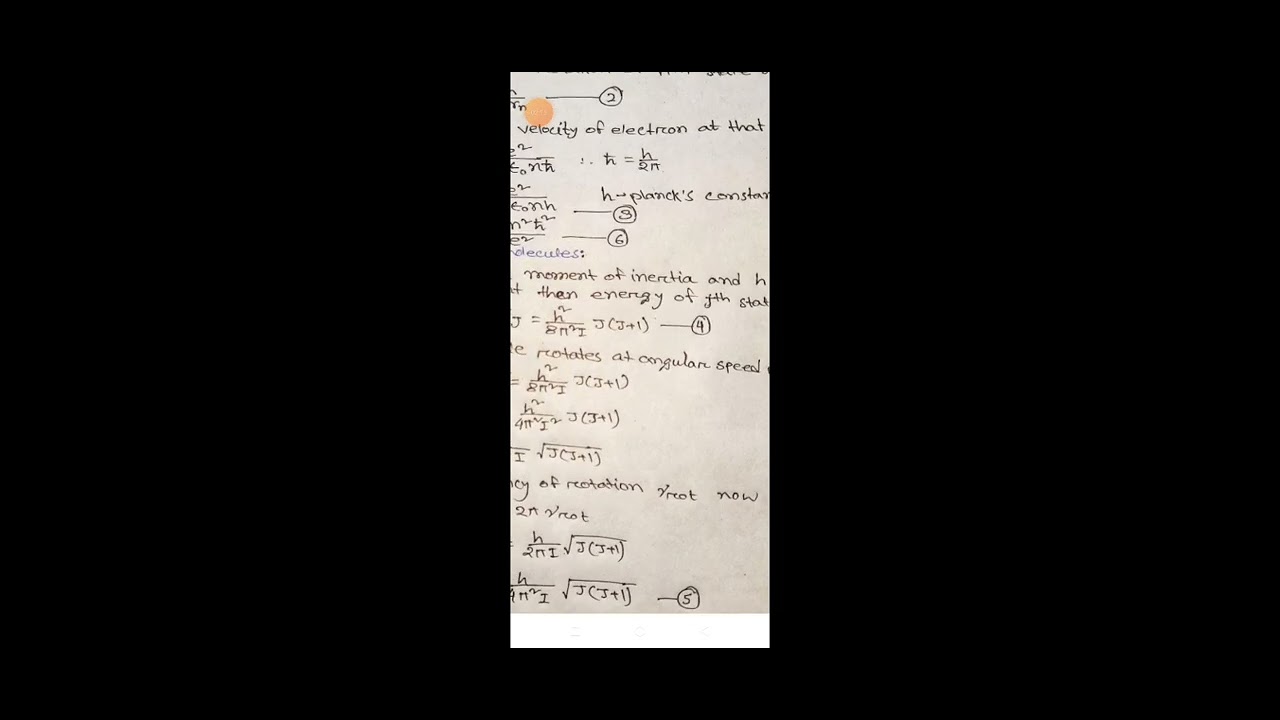 rn ——— ②
velocity of electron at that
e²
ε₀nħ ∴ ħ = h/2π
e²
ε₀nh ——— ③ h→planck's constan
n²ħ²
e² ——— ⑥
olecules:
moment of inertia and h
t then energy of Jth stat
J = h²/8π²I J(J+1) ——— ④
le rotates at angular speed
= h²/8π²I J(J+1)
h²/4π²I² J(J+1)
I √J(J+1)
ncy of rotation νrot now
2π νrot
= h/2πI √J(J+1)
h/4π²I √J(J+1) ——— ⑤